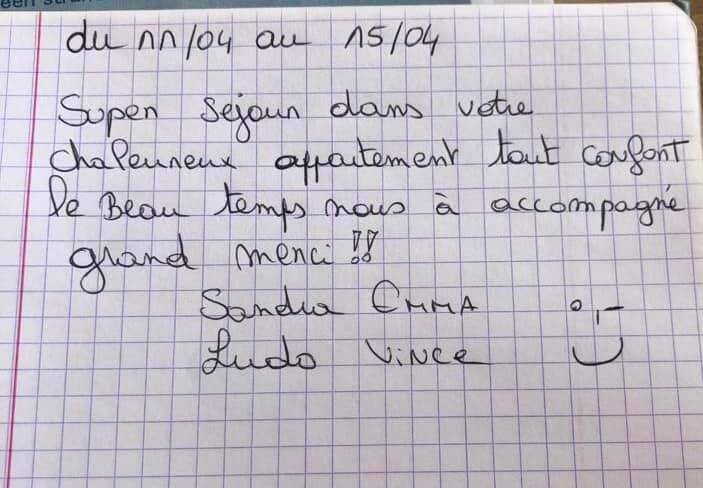 du 11/04 au 15/04
Super séjour dans votre
chaleureux appartement tout confort
le Beau temps nous à accompagné
grand merci !!
Sandra EMMA
Ludo VINCE